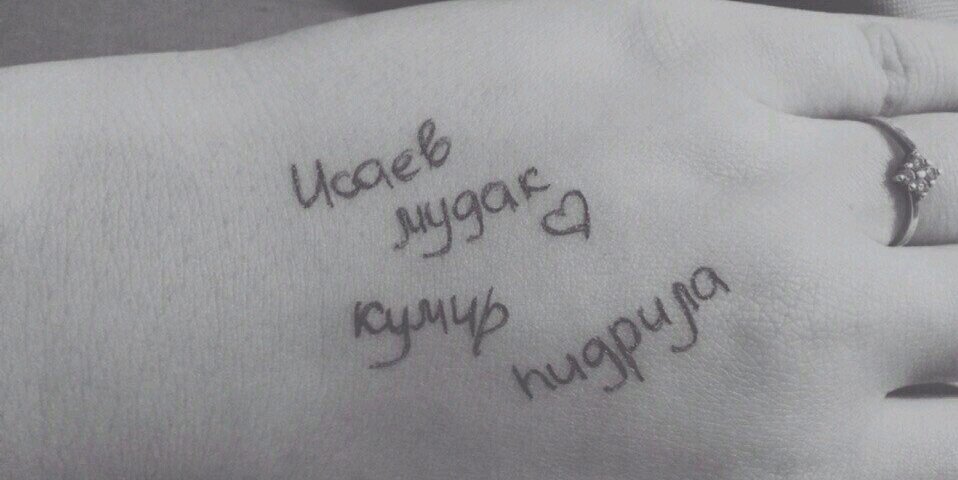 Исаев
мудак ♡
кумир
пидрила